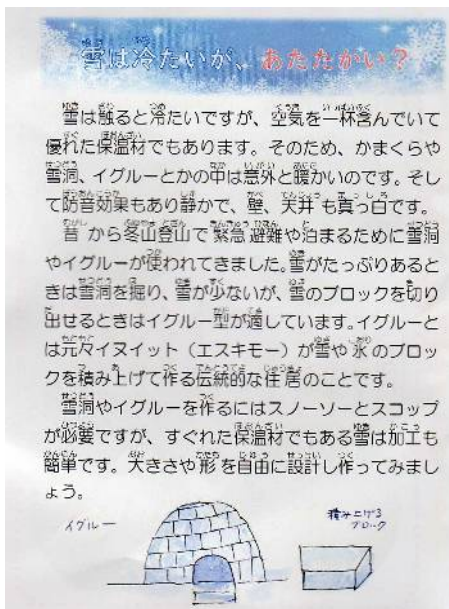 雪は冷たいが、あたたかい？
雪は触ると冷たいですが、空気を一杯含んでいて
優れた保温材でもあります。そのため、かまくらや
雪洞、イグルーとかの中は意外と暖かいのです。そし
て防音効果もあり静かで、壁、天井も真っ白です。
昔から冬山登山で緊急避難や泊まるために雪洞
やイグルーが使われてきました。雪がたっぷりあると
きは雪洞を掘り、雪が少ないが、雪のブロックを切り
出せるときはイグルー型が適しています。イグルーと
は元々イヌイット（エスキモー）が雪や氷のブロッ
クを積み上げて作る伝統的な住居のことです。
雪洞やイグルーを作るにはスノーソーとスコップ
が必要ですが、すぐれた保温材でもある雪は加工も
簡単です。大きさや形を自由に設計し作ってみまし
ょう。
イグルー
積み上げる
ブロック